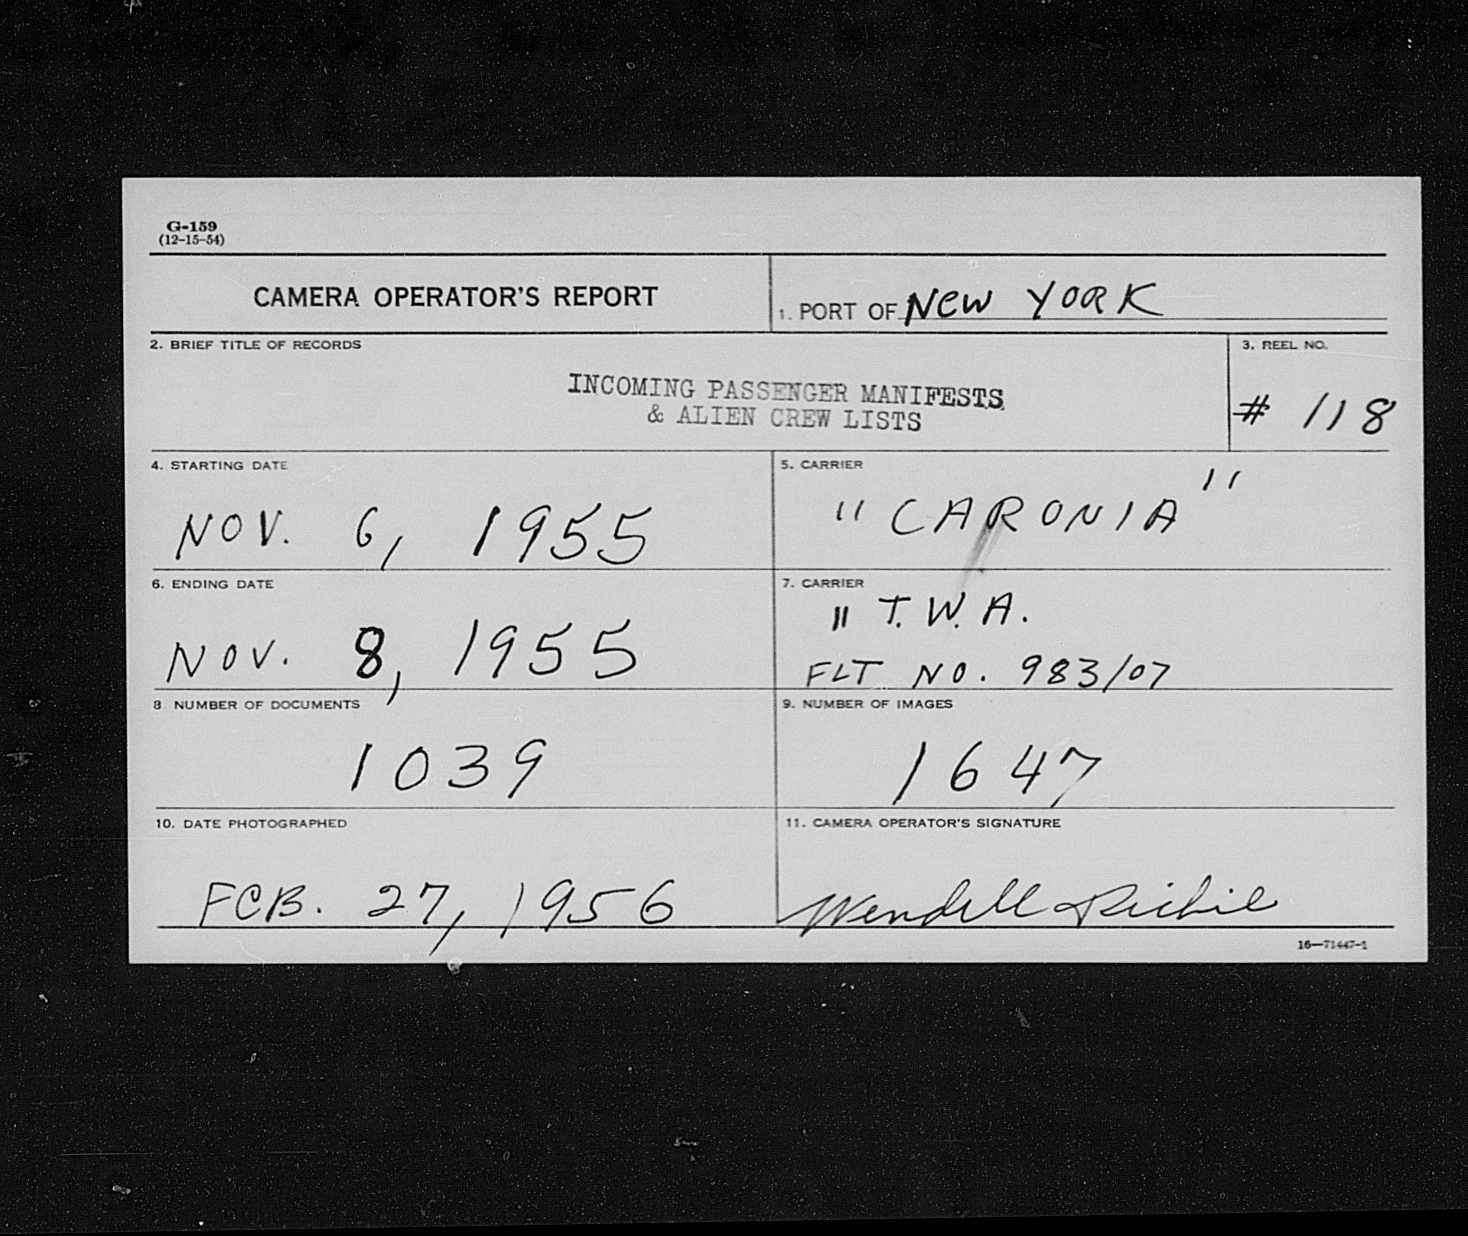 G-159
(12-15-54)
CAMERA OPERATOR'S REPORT
1. PORT OF NEW YORK
2. BRIEF TITLE OF RECORDS
INCOMING PASSENGER MANIFESTS
& ALIEN CREW LISTS
3. REEL NO.
# 118
4. STARTING DATE
NOV. 6, 1955
5. CARRIER
"CARONIA"
6. ENDING DATE
NOV. 8, 1955
7. CARRIER
" T.W.A.
FLT NO. 983/07
8 NUMBER OF DOCUMENTS
1039
9. NUMBER OF IMAGES
1647
10. DATE PHOTOGRAPHED
FEB. 27, 1956
11. CAMERA OPERATOR'S SIGNATURE
Wendell Richie
16—71447-1